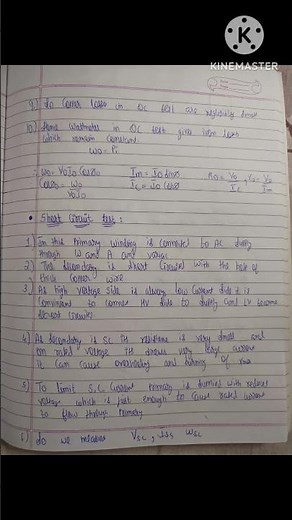 KINEMASTER
9) So Copper losses in O.C test are negligibly small
10) Hence Wattmeter in O.C test gives iron loss
which remain constant.
W0 = Pi
W0 = V0 I0 Cosø0
Im = I0 Sinø0
R0 = V0 / Ic , X0 = V0 / Im
Cosø0 = W0 / V0 I0
Ic = I0 Cosø0
• Short Circuit test :
1) In this Primary winding is connected to AC supply
through W and A and
2) The Secondary is short Circuited with the help of
thick Copper wire
3) As high voltage side is always low Current side it is
Convenient to connect HV side to supply and
4) As Secondary is SC its resistance is very small and
on rated voltage it draws very large current
It can cause overheating and burning of
5) To limit S.C. Current primary is supplied with reduced
voltage which is just enough to cause rated current
to flow through primary
6) So we measure Vsc , Isc, Wsc